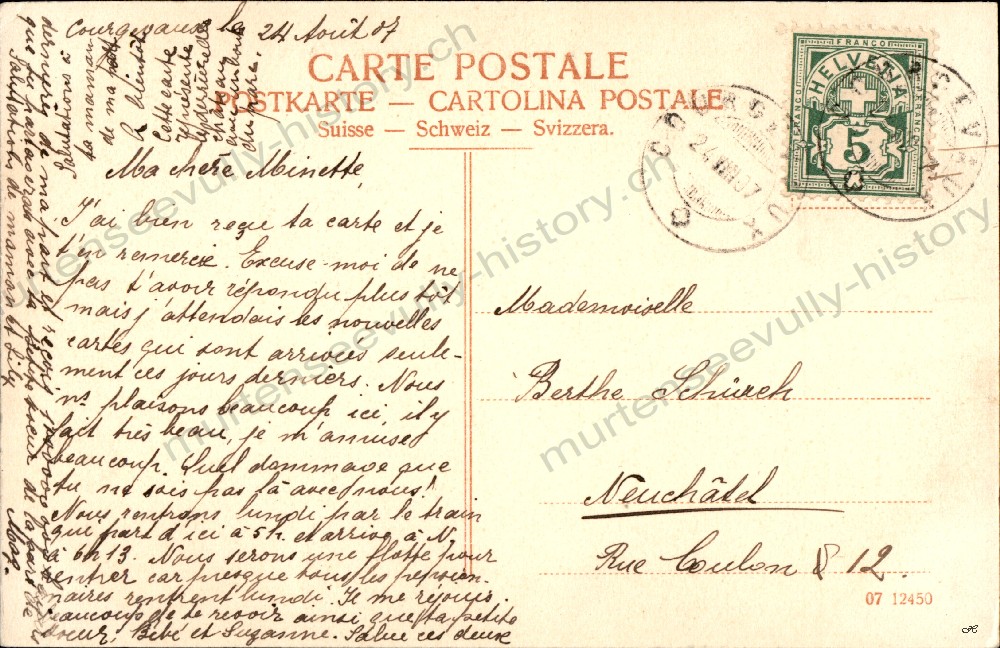 Courgevaux le 24 Août 07
CARTE POSTALE
POSTKARTE — CARTOLINA POSTALE
Suisse — Schweiz — Svizzera.
FRANCO
HELVETIA
5
COURGEVAUX
24.VIII.07
Ma chère Minette,
J'ai bien reçu ta carte et je
t'en remercie. Excuse-moi de ne
pas t'avoir répondu plus tôt
mais j'attendais les nouvelles
cartes qui sont arrivées seule-
ment ces jours derniers. Nous
ns plaisons beaucoup ici, il y
fait très beau, je m'amuse
beaucoup. Quel dommage que
tu ne sois pas là avec nous!
Nous rentrons lundi par le train
qui part d'ici à 5h. et arrive à N.
à 6h13. Nous serons une flotte pour
rentrer car presque tous les pension-
naires rentrent lundi. Je me réjouis
beaucoup de te revoir ainsi que ta petite
soeur, Bébé et Suzanne. Salue ces deux
dernières de ma part et reçois
que tu partageras avec ta petite soeur de la part de
Mag.
Salutations de maman et Lily
Salutations à
ta maman
de ma part
à bientôt
Cette carte
représente
derrière de
Mademoiselle
Berthe Schürch
Neuchâtel
Rue Coulon 12.
07 12450
murtenseevully-history.ch
murtenseevully-history.ch
murtenseevully-history.ch
murtenseevully-history.ch